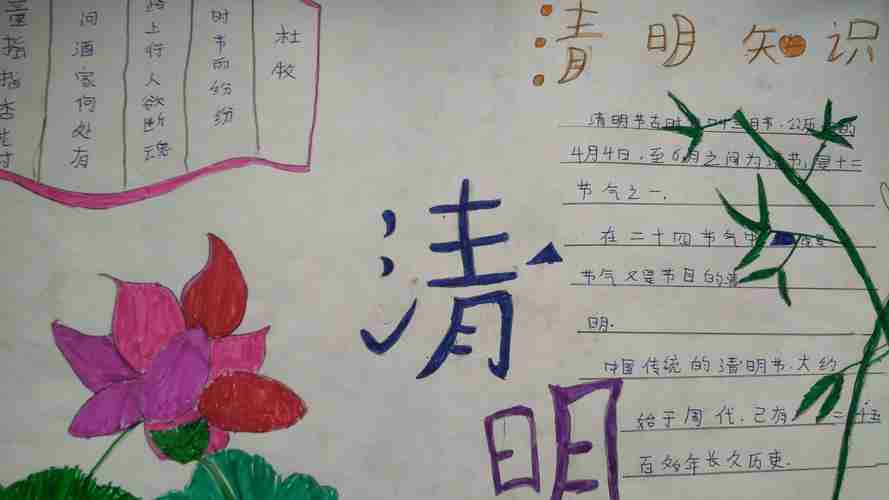 杜牧
时节雨纷纷
路上行人欲断魂
问酒家何处有
童指指杏花村
清明
清明知识
清明节古时 三月节,公历
4月4日,至6月之间为 节,是十二
节气之一,
在二十四节气中
节气又是节日的
明.
中国传统的清明节,大约
始于周代,已有 二 五
百多年长久历史.